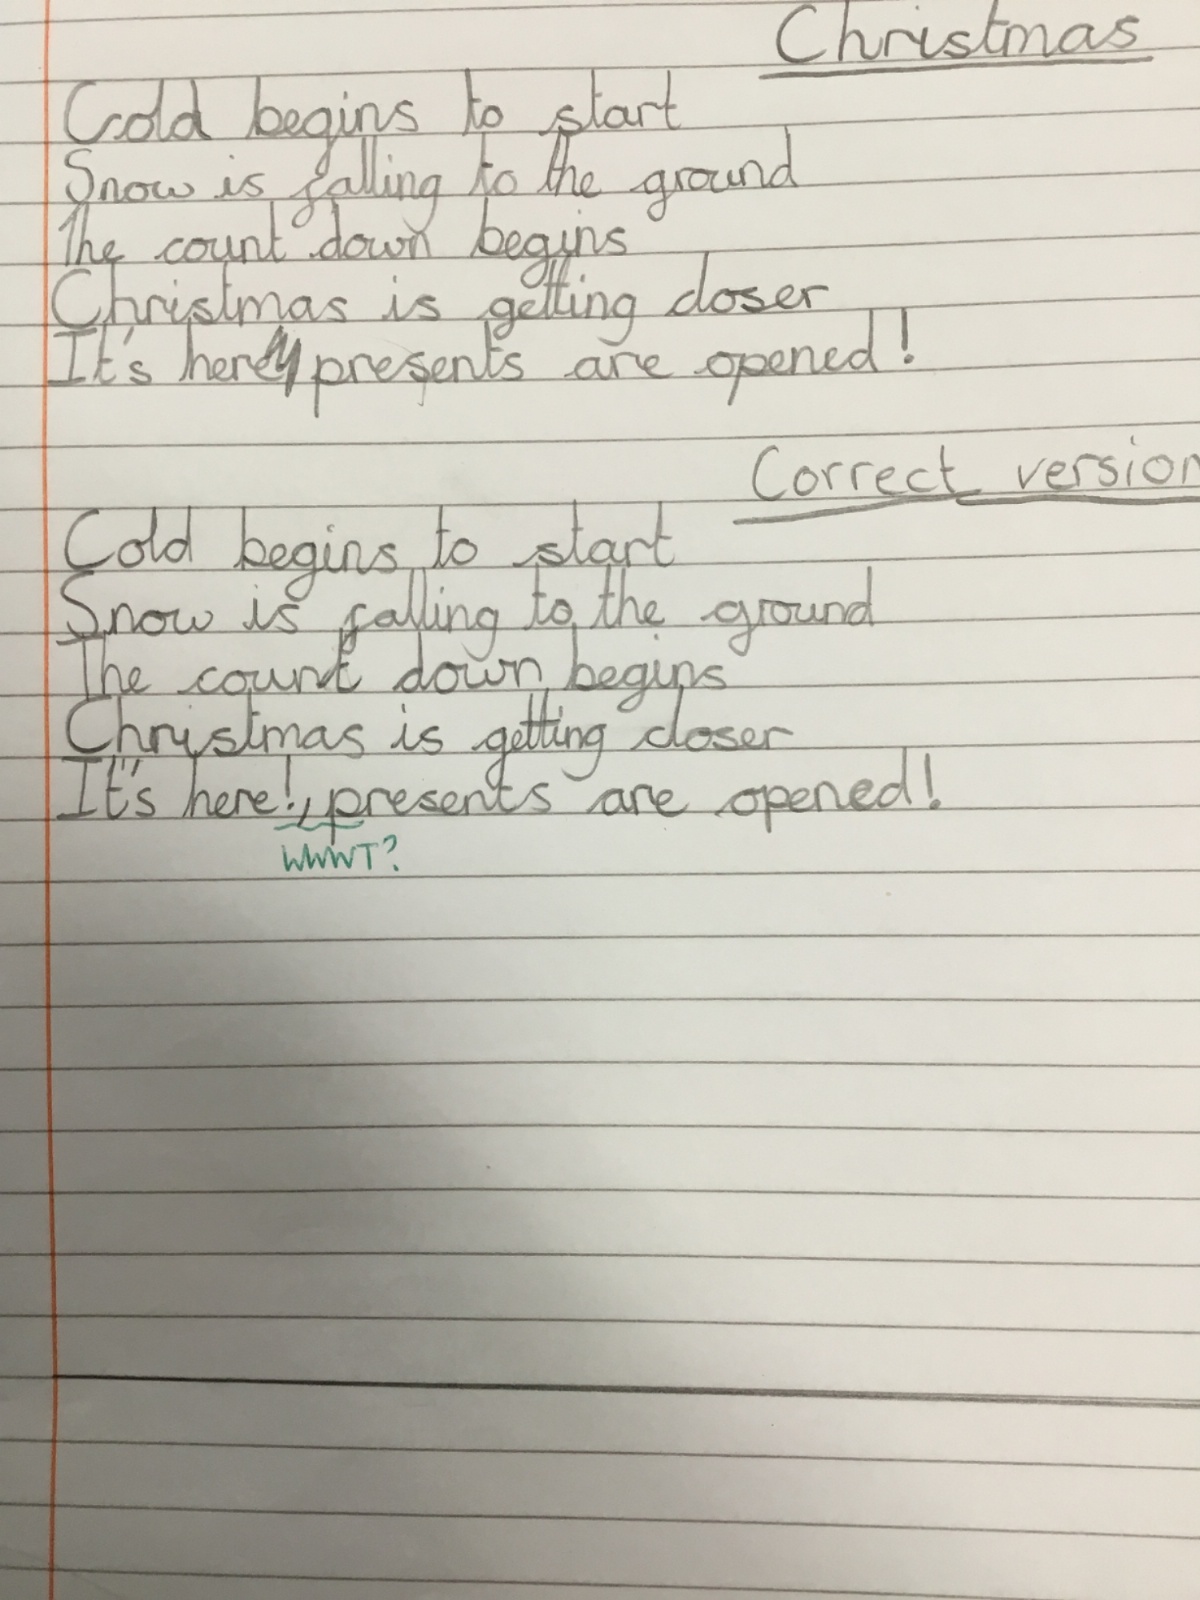 Christmas
Cold begins to start
Snow is falling to the ground
The count down begins
Christmas is getting closer
It's here presents are opened!
Correct version
Cold begins to start
Snow is falling to the ground
The count down begins
Christmas is getting closer
It's here!, presents are opened!
WWWT?